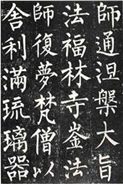 師通涅槃大旨
於福林寺崟法
師復夢梵僧以
舍利滿琉璃器